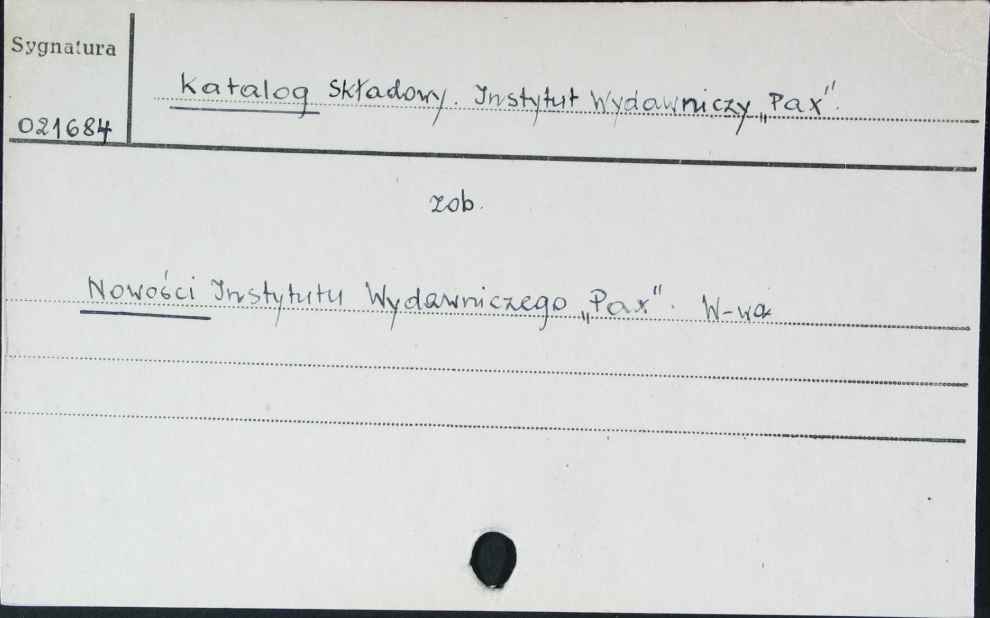 Sygnatura
Katalog Składowy. Instytut Wydawniczy „Pax".
021684
zob.
Nowości Instytutu Wydawniczego „Pax". W-wa